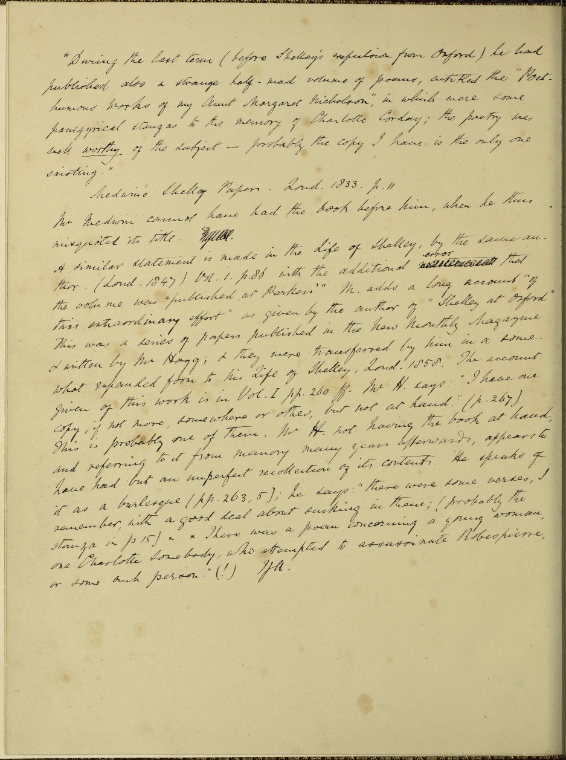 "During the last term (before Shelley's expulsion from Oxford) he had
published also a strange half-mad volume of poems, entitled the "Post-
humous Works of my Aunt Margaret Nicholson", in which were some
panegyrical stanzas to the memory of Charlotte Corday; the poetry was
well worthy of the subject — probably the copy I have is the only one
existing."
Medwin's Shelley Papers. Lond. 1833. p. 11
Mr Medwin cannot have had the book before him, when he thus
misquoted its title.
A similar statement is made in the Life of Shelley, by the same au-
thor. (Lond. 1847) Vol. 1. p. 86 with the additional error that
the volume was "published at Parker's" M. adds a long account "of
this extraordinary effort" as given by the author of "Shelley at Oxford"
This was a series of papers published in the New Monthly Magazine
& written by Mr Hogg; & they were transferred by him in a some-
what expanded form to his Life of Shelley, Lond. 1858. The account
given of this work is in Vol. I pp. 260 ff. Mr H. says: "I have one
copy, if not more, somewhere or other, but not at hand" (p. 267)
This is probably one of them. Mr H. not having the book at hand,
and referring to it from memory many years afterwards, appears to
have had but an imperfect recollection of its contents. He speaks of
it as a burlesque (pp. 263, 5); he says: "there were some verses, I
remember, with a good deal about sucking in them; (probably the
stanza in p 15) " " There was a poem concerning a young woman,
one Charlotte Somebody, who attempted to assassinate Robespierre,
or some such person." (!)